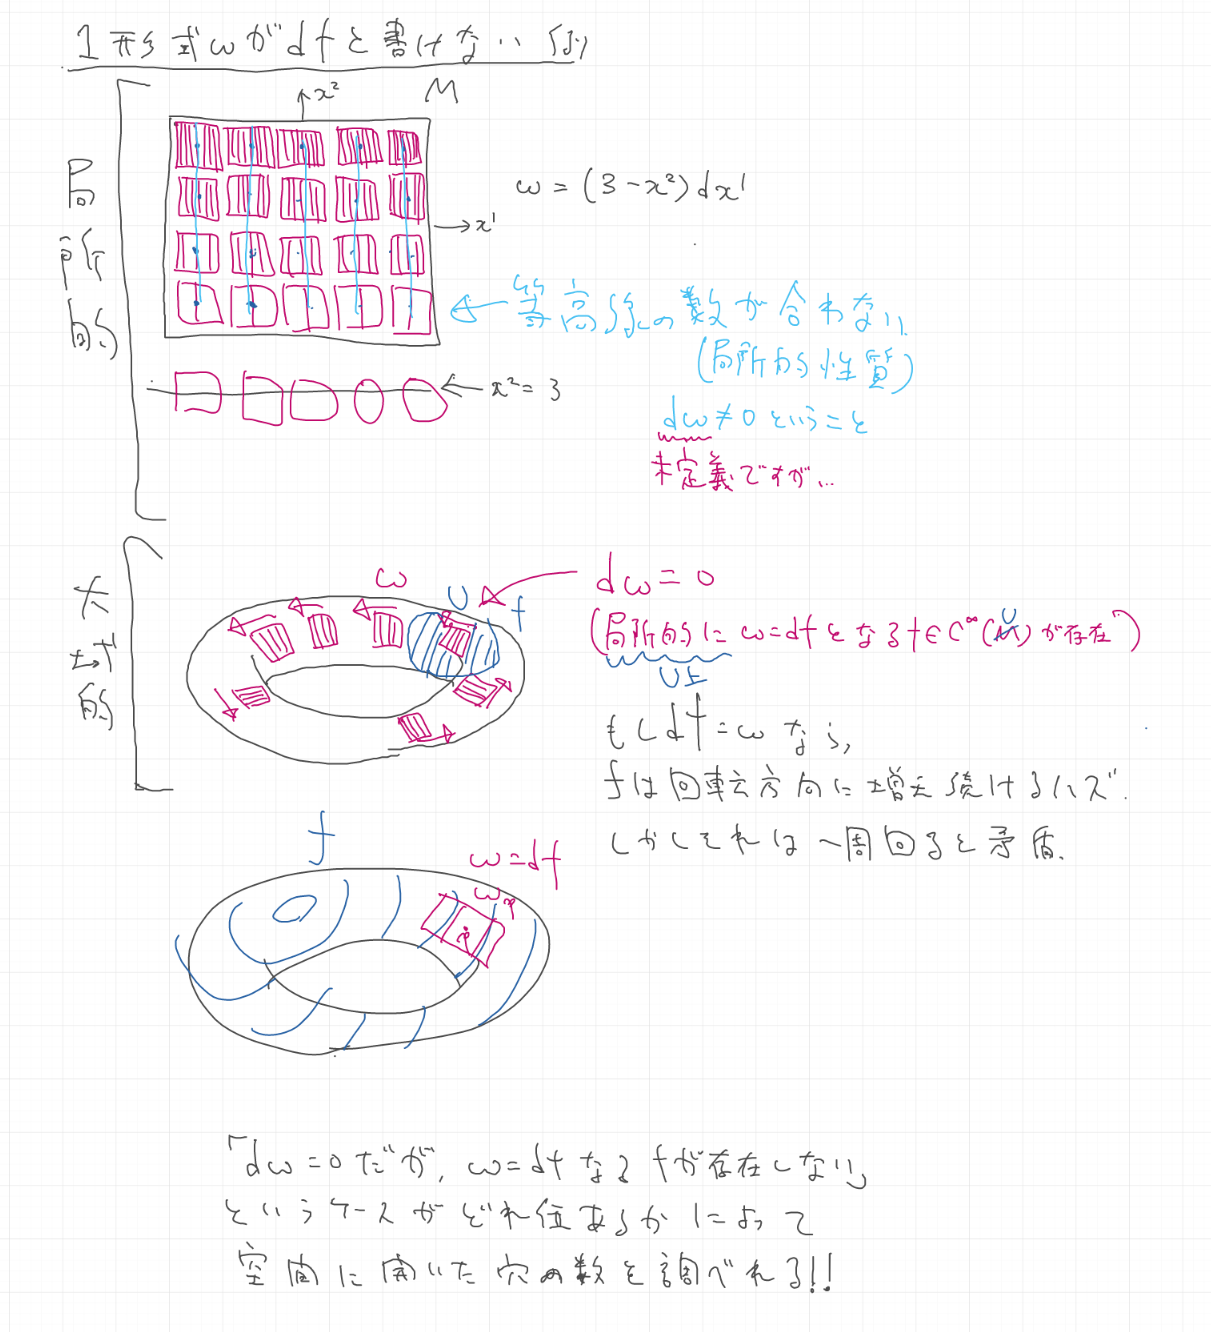 1形式ωがdfと書けない例
局所的
x²
M
ω = (3 - x²) dx¹
x¹
等高線の数が合わない
(局所的性質)
x² = 3
dω ≠ 0 ということ
未定義ですが...
大域的
ω
U
f
dω = 0
(局所的に ω=df となる f∈C∞(U) が存在)
U上
もし df = ω なら,
fは回転方向に増え続けるハズ.
しかしそれは一周回ると矛盾.
f
ω = df
ωp
p
「dω = 0 だが, ω = df なる fが存在しない」
というケースがどれ位あるかによって
空間に開いた穴の数を調べれる!!